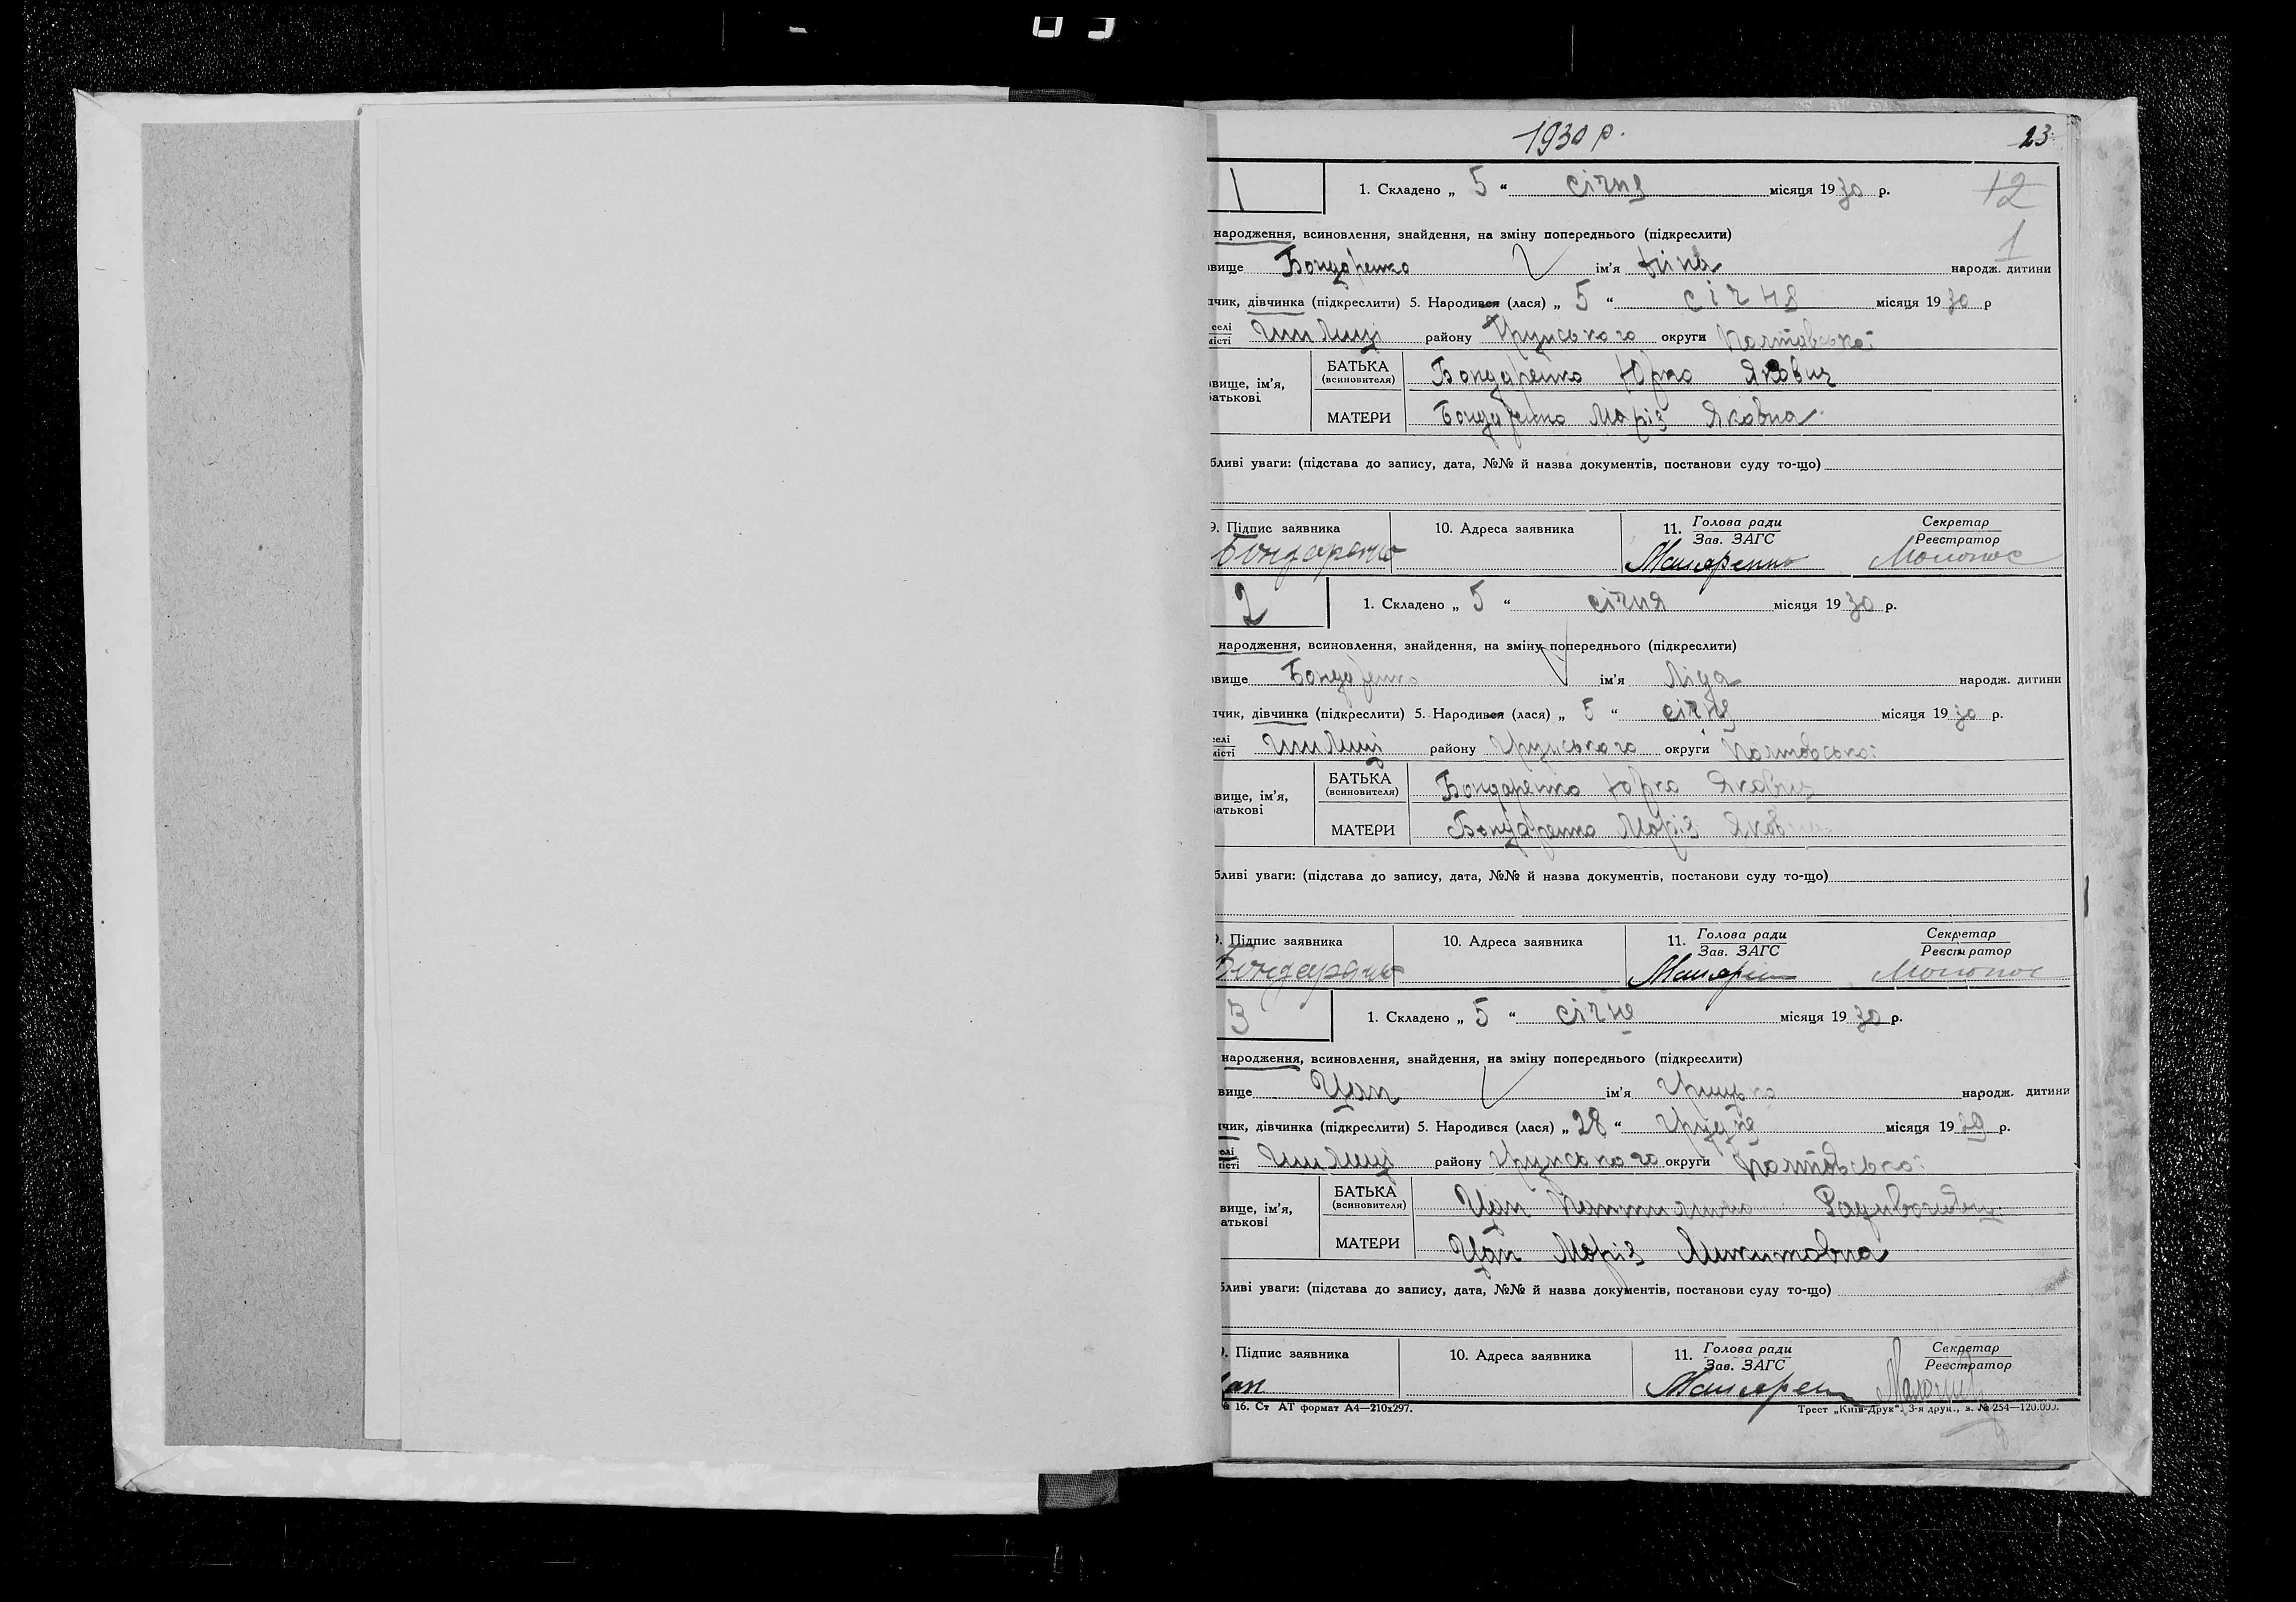 1930 р.
23
1
1. Складено „ 5 “ січня місяця 1930 р.
12
1
народження, всиновлення, знайдення, на зміну попереднього (підкреслити)
звище Бондаренко ім'я народж. дитини
пчик, дівчинка (підкреслити) 5. Народився (лася) „ 5 “ січня місяця 1930 р
селі
місті
району Грунського округи Полтавської
БАТЬКА
(всиновителя)
Бондаренко Юрко Якович
звище, ім'я,
батькові
МАТЕРИ Бондаренко Марія Яковна
бливі уваги: (підстава до запису, дата, №№ й назва документів, постанови суду то-що)
9. Підпис заявника 10. Адреса заявника 11. Голова ради
Зав. ЗАГС
Секретар
Реєстратор
Бондаренко Макаренко
2
1. Складено „ 5 “ січня місяця 1930 р.
народження, всиновлення, знайдення, на зміну попереднього (підкреслити)
звище Бондаренко ім'я Ліда народж. дитини
пчик, дівчинка (підкреслити) 5. Народився (лася) „ 5 “ січня місяця 1930 р.
селі
місті
району Грунського округи Полтавської
БАТЬКА
(всиновителя)
Бондаренко Юрко Якович
вище, ім'я,
батькові
МАТЕРИ Бондаренко Марія Яковна
бливі уваги: (підстава до запису, дата, №№ й назва документів, постанови суду то-що)
9. Підпис заявника 10. Адреса заявника 11. Голова ради
Зав. ЗАГС
Секретар
Реєстратор
Бондаренко
3
1. Складено „ 5 “ січня місяця 1930 р.
народження, всиновлення, знайдення, на зміну попереднього (підкреслити)
вище Цап ім'я Грицько народж. дитини
пчик, дівчинка (підкреслити) 5. Народився (лася) „ 28 “ Грудня місяця 1929 р.
селі
місті
району Грунського округи Полтавської
БАТЬКА
(всиновителя)
Цап
вище, ім'я,
атькові
МАТЕРИ Цап Марія Микитовна
бливі уваги: (підстава до запису, дата, №№ й назва документів, постанови суду то-що)
9. Підпис заявника 10. Адреса заявника 11. Голова ради
Зав. ЗАГС
Секретар
Реєстратор
Цап
№ 16. Ст АТ формат А4—210х297. Трест „Київ-Друк“. 3-я друк., з. № 254—120.000.